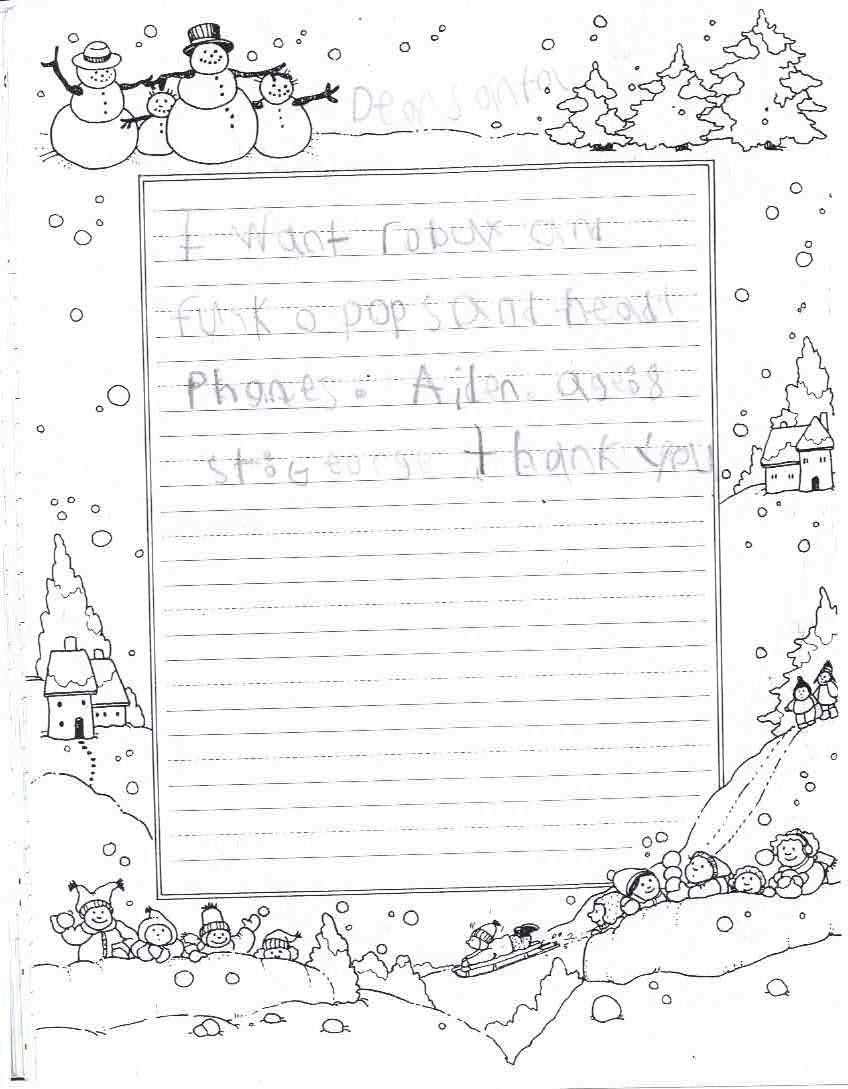 Dear santa
I want robux and
funk o pops and head
Phones. Aiden. age:8
st:George Thank you